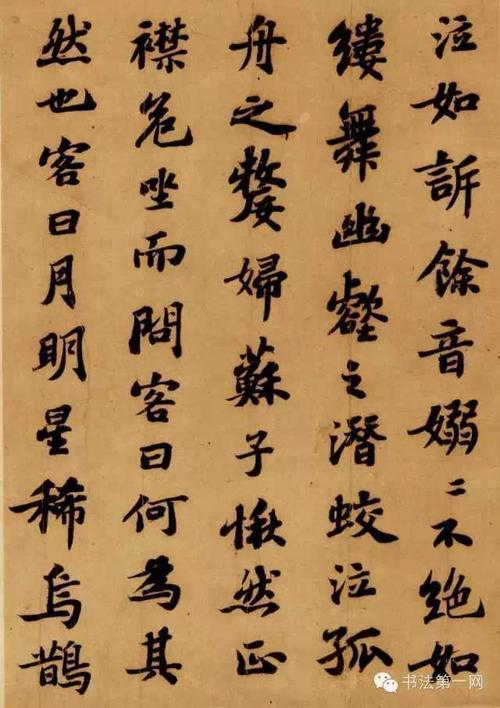 泣如訴餘音嫋〻不絕如
縷舞幽壑之潛蛟泣孤
舟之嫠婦蘇子愀然正
襟危坐而問客曰何為其
然也客曰月明星稀烏鵲
书法第一网